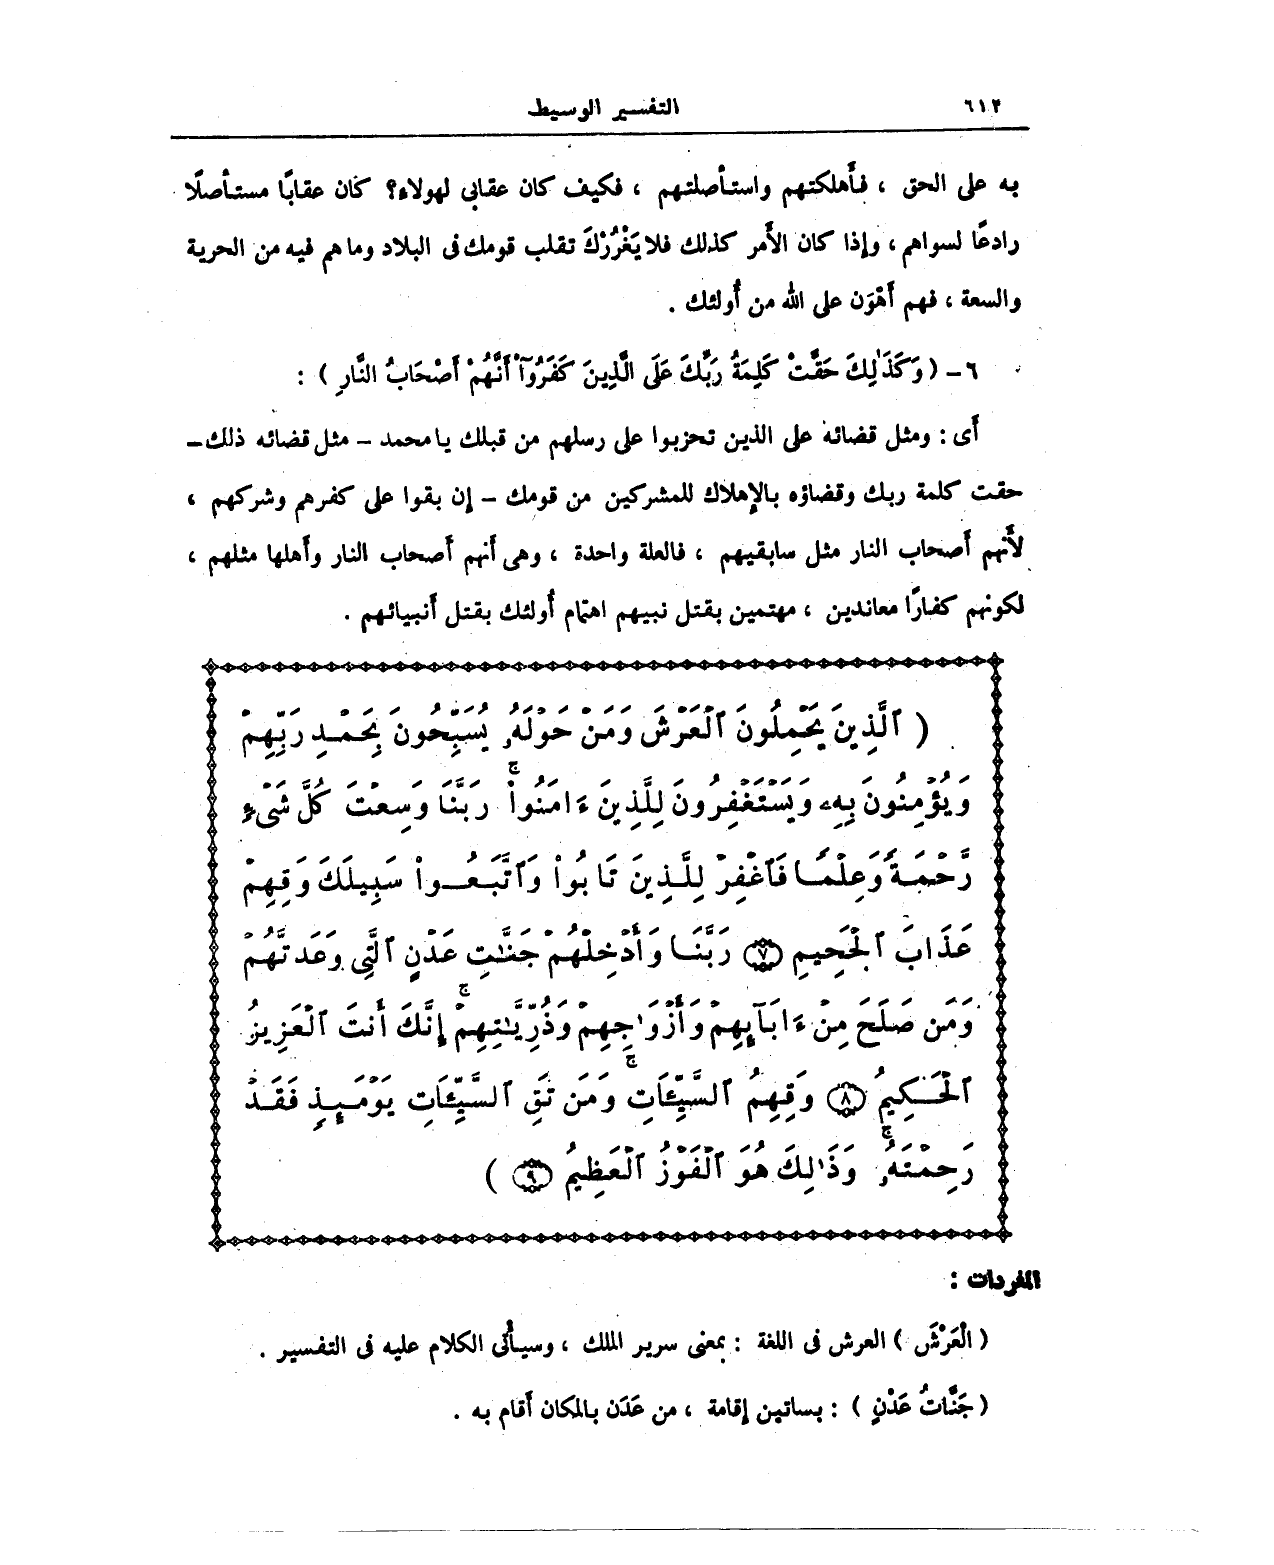 ٦١٢
التفسير الوسيط
به على الحق ، فأهلكتهم واستأصلتهم ، فكيف كان عقابى لهولاء؟ كان عقابًا مستأصلًا
رادعًا لسواهم ، وإذا كان الأمر كذلك فلا يَغْرُرْكَ تقلب قومك فى البلاد وما هم فيه من الحرية
والسعة ، فهم أَهْوَن على الله من أُولئك .
٦ – ( وَكَذَٰلِكَ حَقَّتْ كَلِمَةُ رَبِّكَ عَلَى الَّذِينَ كَفَرُوٓا أَنَّهُمْ أَصْحَابُ النَّارِ ) :
أى : ومثل قضائه على الذين تحزبوا على رسلهم من قبلك يا محمد – مثل قضائه ذلك –
حقت كلمة ربك وقضاؤه بالإهلاك للمشركين من قومك – إن بقوا على كفرهم وشركهم ،
لأنهم أصحاب النار مثل سابقيهم ، فالعلة واحدة ، وهى أنهم أصحاب النار وأهلها مثلهم ،
لكونهم كفارًا معاندين ، مهتمين بقتل نبيهم اهتمام أُولئك بقتل أنبيائهم .
( ٱلَّذِينَ يَحْمِلُونَ ٱلْعَرْشَ وَمَنْ حَوْلَهُۥ يُسَبِّحُونَ بِحَمْدِ رَبِّهِمْ
وَيُؤْمِنُونَ بِهِۦ وَيَسْتَغْفِرُونَ لِلَّذِينَ ءَامَنُوا۟ۚ رَبَّنَا وَسِعْتَ كُلَّ شَىْءٍ
رَّحْمَةً وَعِلْمًا فَٱغْفِرْ لِلَّذِينَ تَابُوا۟ وَٱتَّبَعُوا۟ سَبِيلَكَ وَقِهِمْ
عَذَابَ ٱلْجَحِيمِ ٧ رَبَّنَا وَأَدْخِلْهُمْ جَنَّٰتِ عَدْنٍ ٱلَّتِى وَعَدتَّهُمْ
وَمَن صَلَحَ مِنْ ءَابَآئِهِمْ وَأَزْوَٰجِهِمْ وَذُرِّيَّٰتِهِمْۚ إِنَّكَ أَنتَ ٱلْعَزِيزُ
ٱلْحَكِيمُ ٨ وَقِهِمُ ٱلسَّيِّـَٔاتِۚ وَمَن تَقِ ٱلسَّيِّـَٔاتِ يَوْمَئِذٍ فَقَدْ
رَحِمْتَهُۥۚ وَذَٰلِكَ هُوَ ٱلْفَوْزُ ٱلْعَظِيمُ ٩ )
المفردات :
( الْعَرْشَ ) العرش فى اللغة : بمعنى سرير الملك ، وسيأتى الكلام عليه فى التفسير .
( جَنَّاتُ عَدْنٍ ) : بساتين إقامة ، من عَدَن بالمكان أقام به .